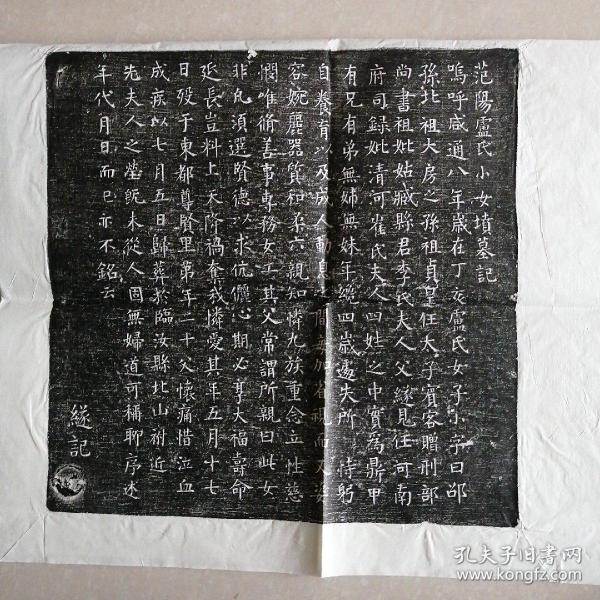 范陽盧氏小女墳墓記
嗚呼咸通八年歲在丁亥盧氏女子小字曰邵
孫北祖大房之孫祖貞皇任太子賓客贈刑部
尚書祖妣姑臧縣君李氏夫人父緣見任河南
府司録妣清河崔氏夫人四姓之中實為鼎甲
有兄有弟無姊無妹年纔四歲遽失所恃躬
自養育以及成人動息間無加省視而又姿
容婉麗器質和柔六親知憐九族重念立性慈
憫唯脩善事專務女工其父常謂所親曰此女
非凡須選賢德以求伉儷心期必享大福壽命
延長豈料上天降禍奪我憐愛其年五月十七
日歿于東都尊賢里第年二十父懷痛惜泣血
成疾以七月五日歸葬於臨汝縣北山祔近
先夫人之塋既未從人固無婦道可稱聊序述
年代月日而已亦不銘云
記
孔夫子旧書网
www.kongfz.com